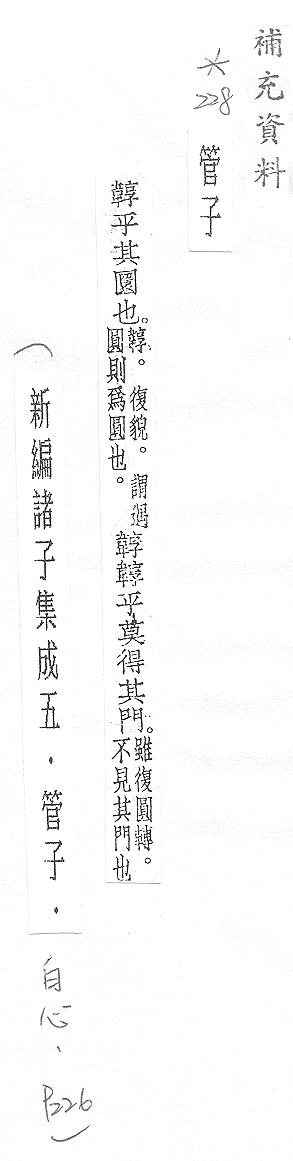 補充資料
※
228
管子
韕乎其圜也。韕。復貌。謂遇
圓則爲圓也。
韕韕乎莫得其門。雖復圓轉。
不見其門也
(新編諸子集成五．管子．白心、P226)